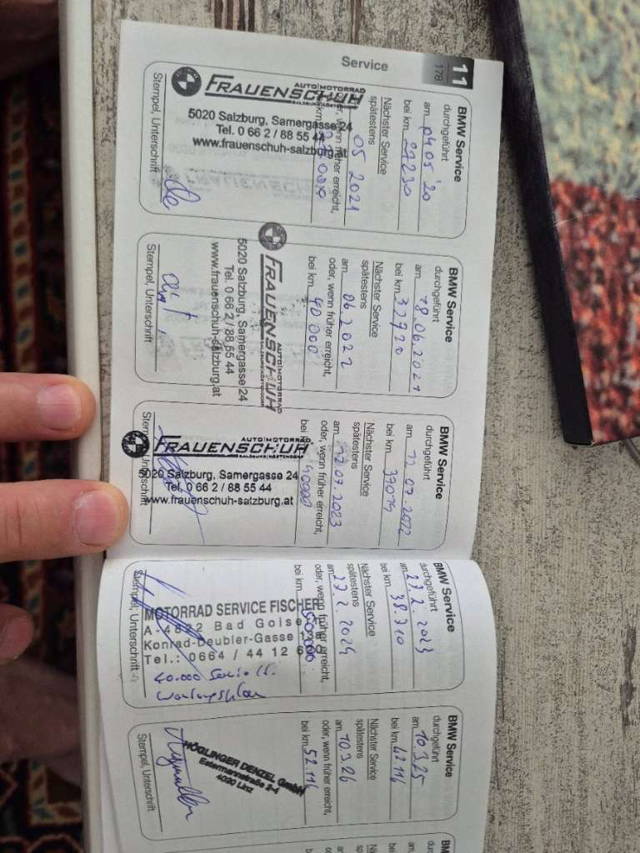 Service
11
178
BMW Service
durchgeführt
am 04.05.'20
bei km 29230
Nächster Service
spätestens
05 2021
oder, wenn früher erreicht,
Stempel, Unterschrift
AUTO | MOTORRAD
FRAUENSCHUH
5020 Salzburg, Samergasse 24
Tel. 0 66 2 / 88 55 44
www.frauenschuh-salzburg.at
BMW Service
durchgeführt
am 18.06.2021
bei km 32920
Nächster Service
spätestens
am 06 2022
oder, wenn früher erreicht,
bei km 40 000
AUTO | MOTORRAD
FRAUENSCHUH
5020 Salzburg, Samergasse 24
Tel. 0 66 2 / 88 55 44
www.frauenschuh-salzburg.at
Stempel, Unterschrift
BMW Service
durchgeführt
am 12.07.2022
bei km
Nächster Service
spätestens
am 07.2023
oder, wenn früher erreicht,
bei 40000
AUTO | MOTORRAD
FRAUENSCHUH
5020 Salzburg, Samergasse 24
Tel. 0 66 2 / 88 55 44
www.frauenschuh-salzburg.at
BMW Service
durchgeführt
am 27.2.2023
bei km 38710
Nächster Service
spätestens
am 27.2.2024
oder, wenn früher erreicht,
bei km
MOTORRAD SERVICE FISCHER
A-4822 Bad Goisern
Konrad-Deubler-Gasse
Tel.: 0664 / 44 12
40.000 Service lt.
Wartungsplan
Stempel, Unterschrift
BMW Service
durchgeführt
am 10.3.25
bei km 42116
Nächster Service
spätestens
am 10.3.26
oder, wenn früher erreicht,
bei km 52116
HÖGLINGER DENZEL GmbH
4020 Linz
Stempel, Unterschrift
BMW